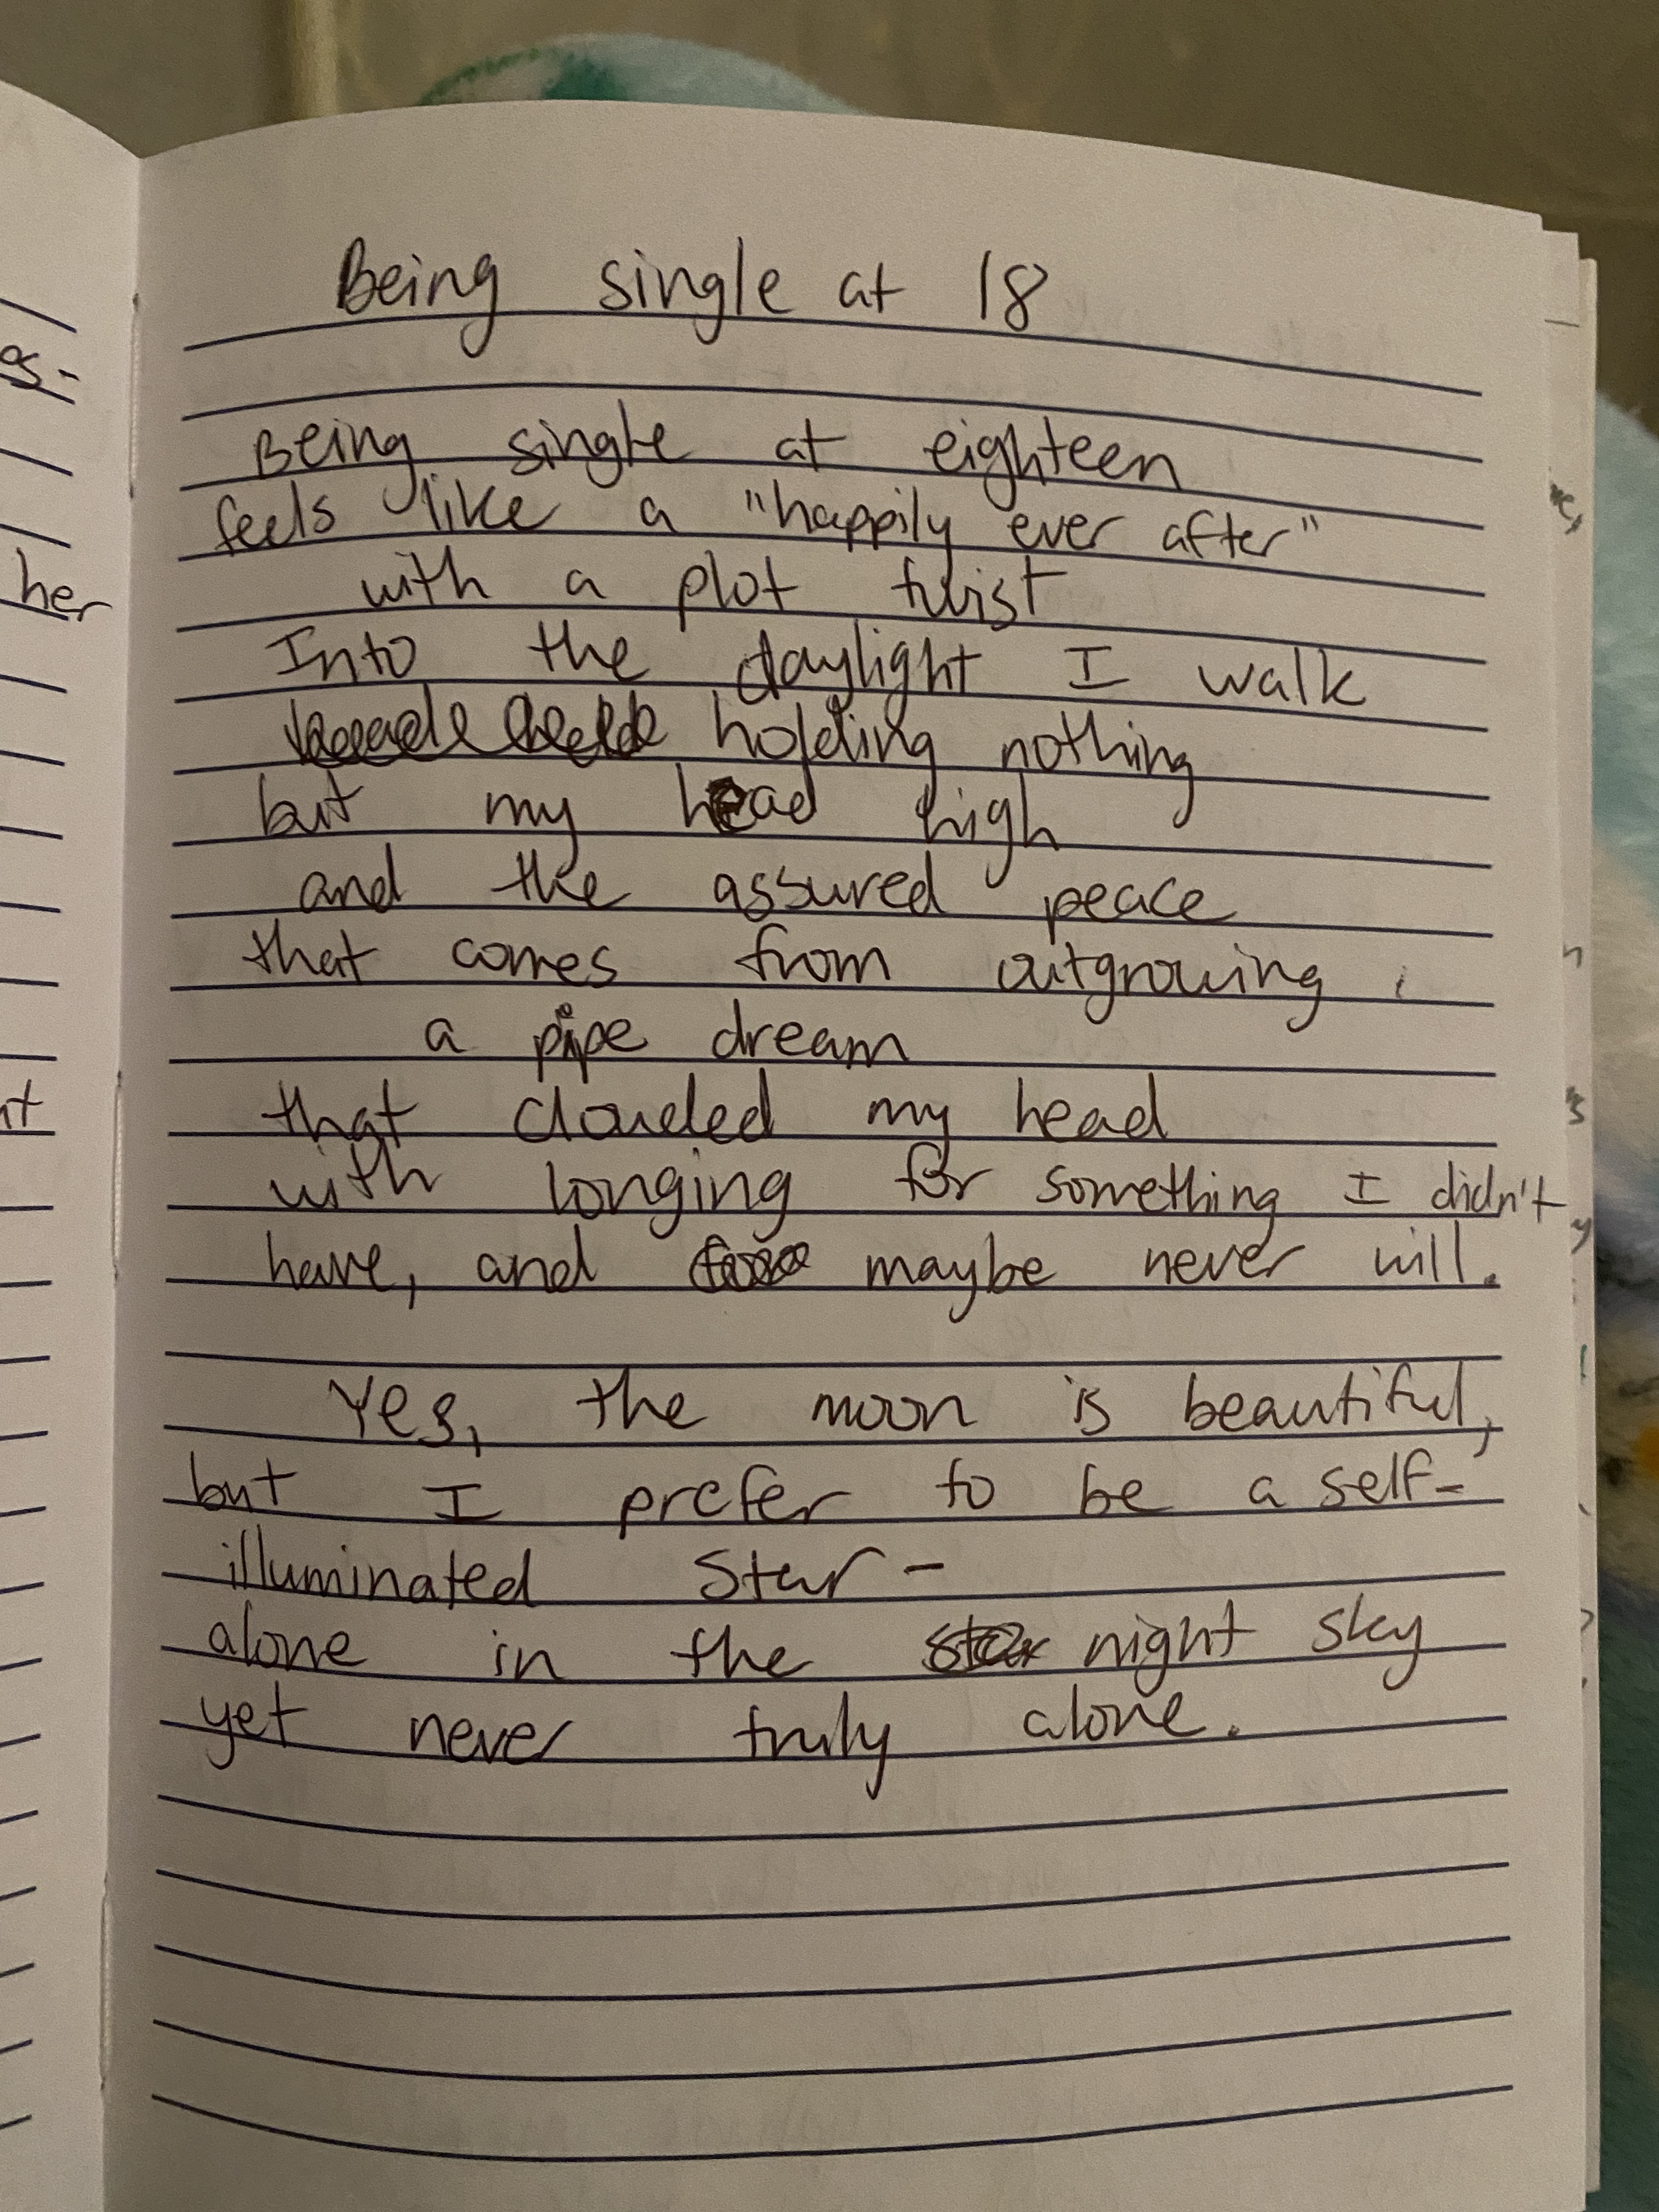 Being single at 18
Being single at eighteen
feels like a "happily ever after"
with a plot twist
Into the daylight I walk
holding nothing
but my head high
and the assured peace
that comes from outgrowing
a pipe dream
that clouded my head
with longing for something I didn't
have, and maybe never will.
Yes, the moon is beautiful,
but I prefer to be a self-
illuminated star-
alone in the night sky
yet never truly alone.
her